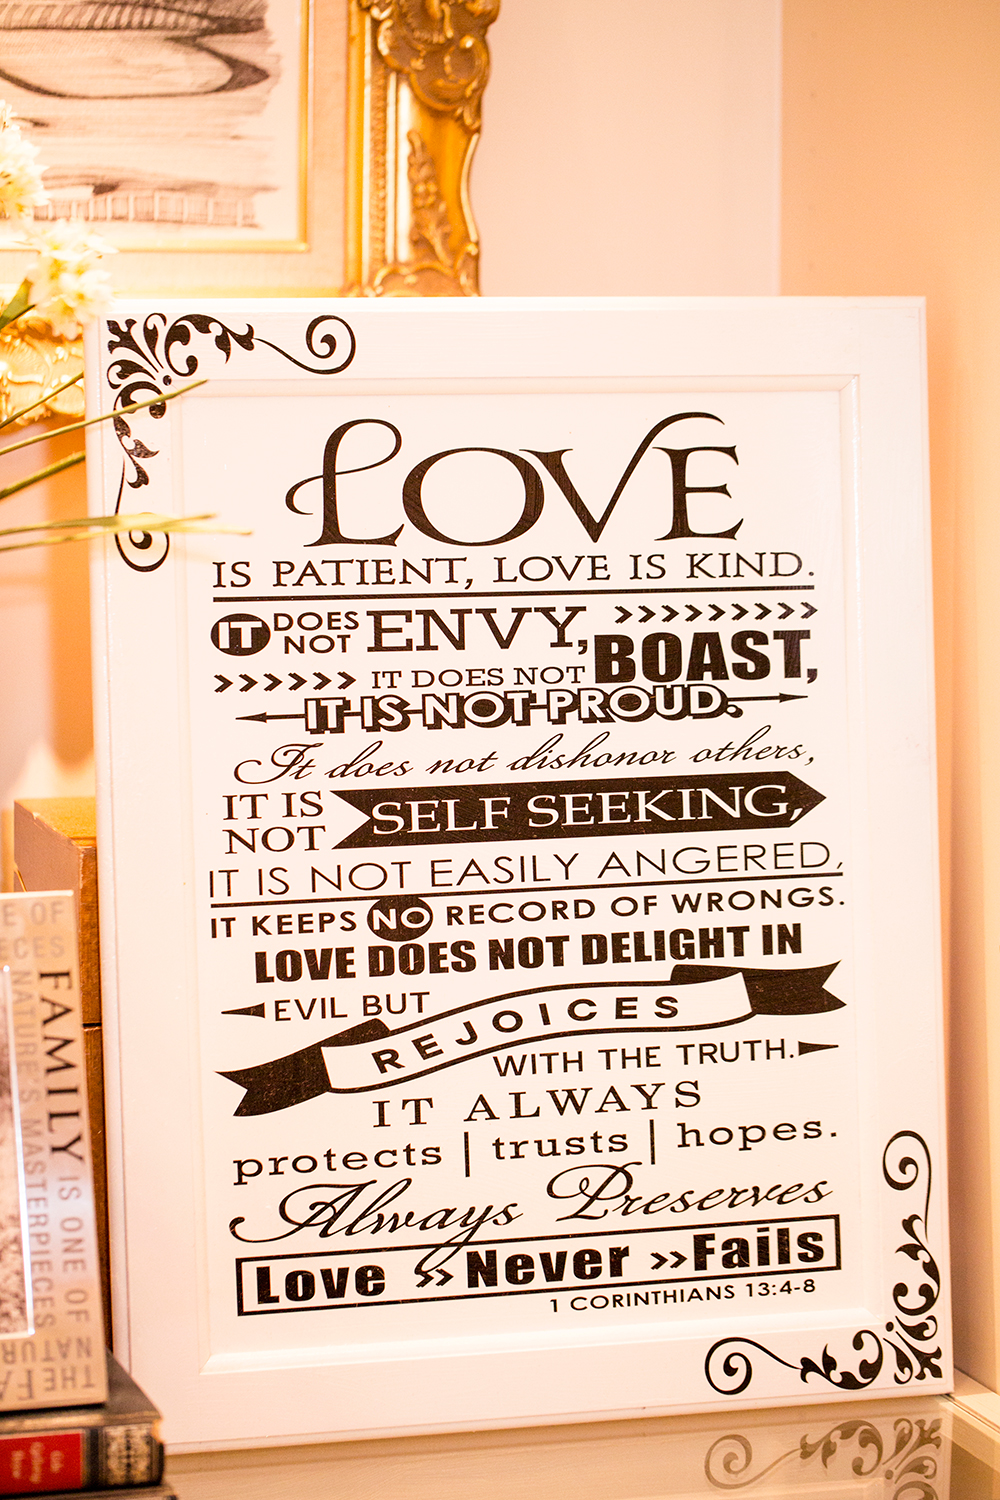 LOVE
IS PATIENT, LOVE IS KIND.
IT DOES NOT ENVY,
IT DOES NOT BOAST,
IT IS NOT PROUD.
It does not dishonor others,
IT IS NOT SELF SEEKING,
IT IS NOT EASILY ANGERED,
IT KEEPS NO RECORD OF WRONGS.
LOVE DOES NOT DELIGHT IN
EVIL BUT
REJOICES
WITH THE TRUTH.
IT ALWAYS
protects | trusts | hopes.
Always Preserves
Love >> Never >> Fails
1 CORINTHIANS 13:4-8
FAMILY IS ONE OF
NATURE'S MASTERPIECES
THE FA
NATUR
E OF
ECES